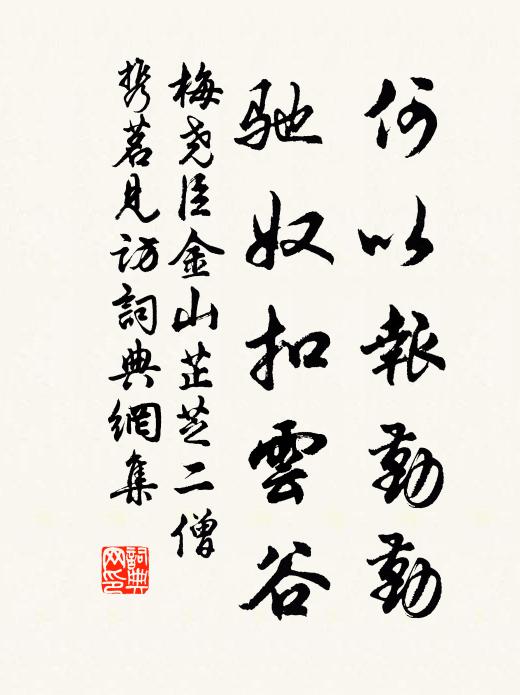 何以報勤勤
驰奴扣雲谷
梅尧臣金山芷芝二僧
携茗見访詞典網集
詞典网印